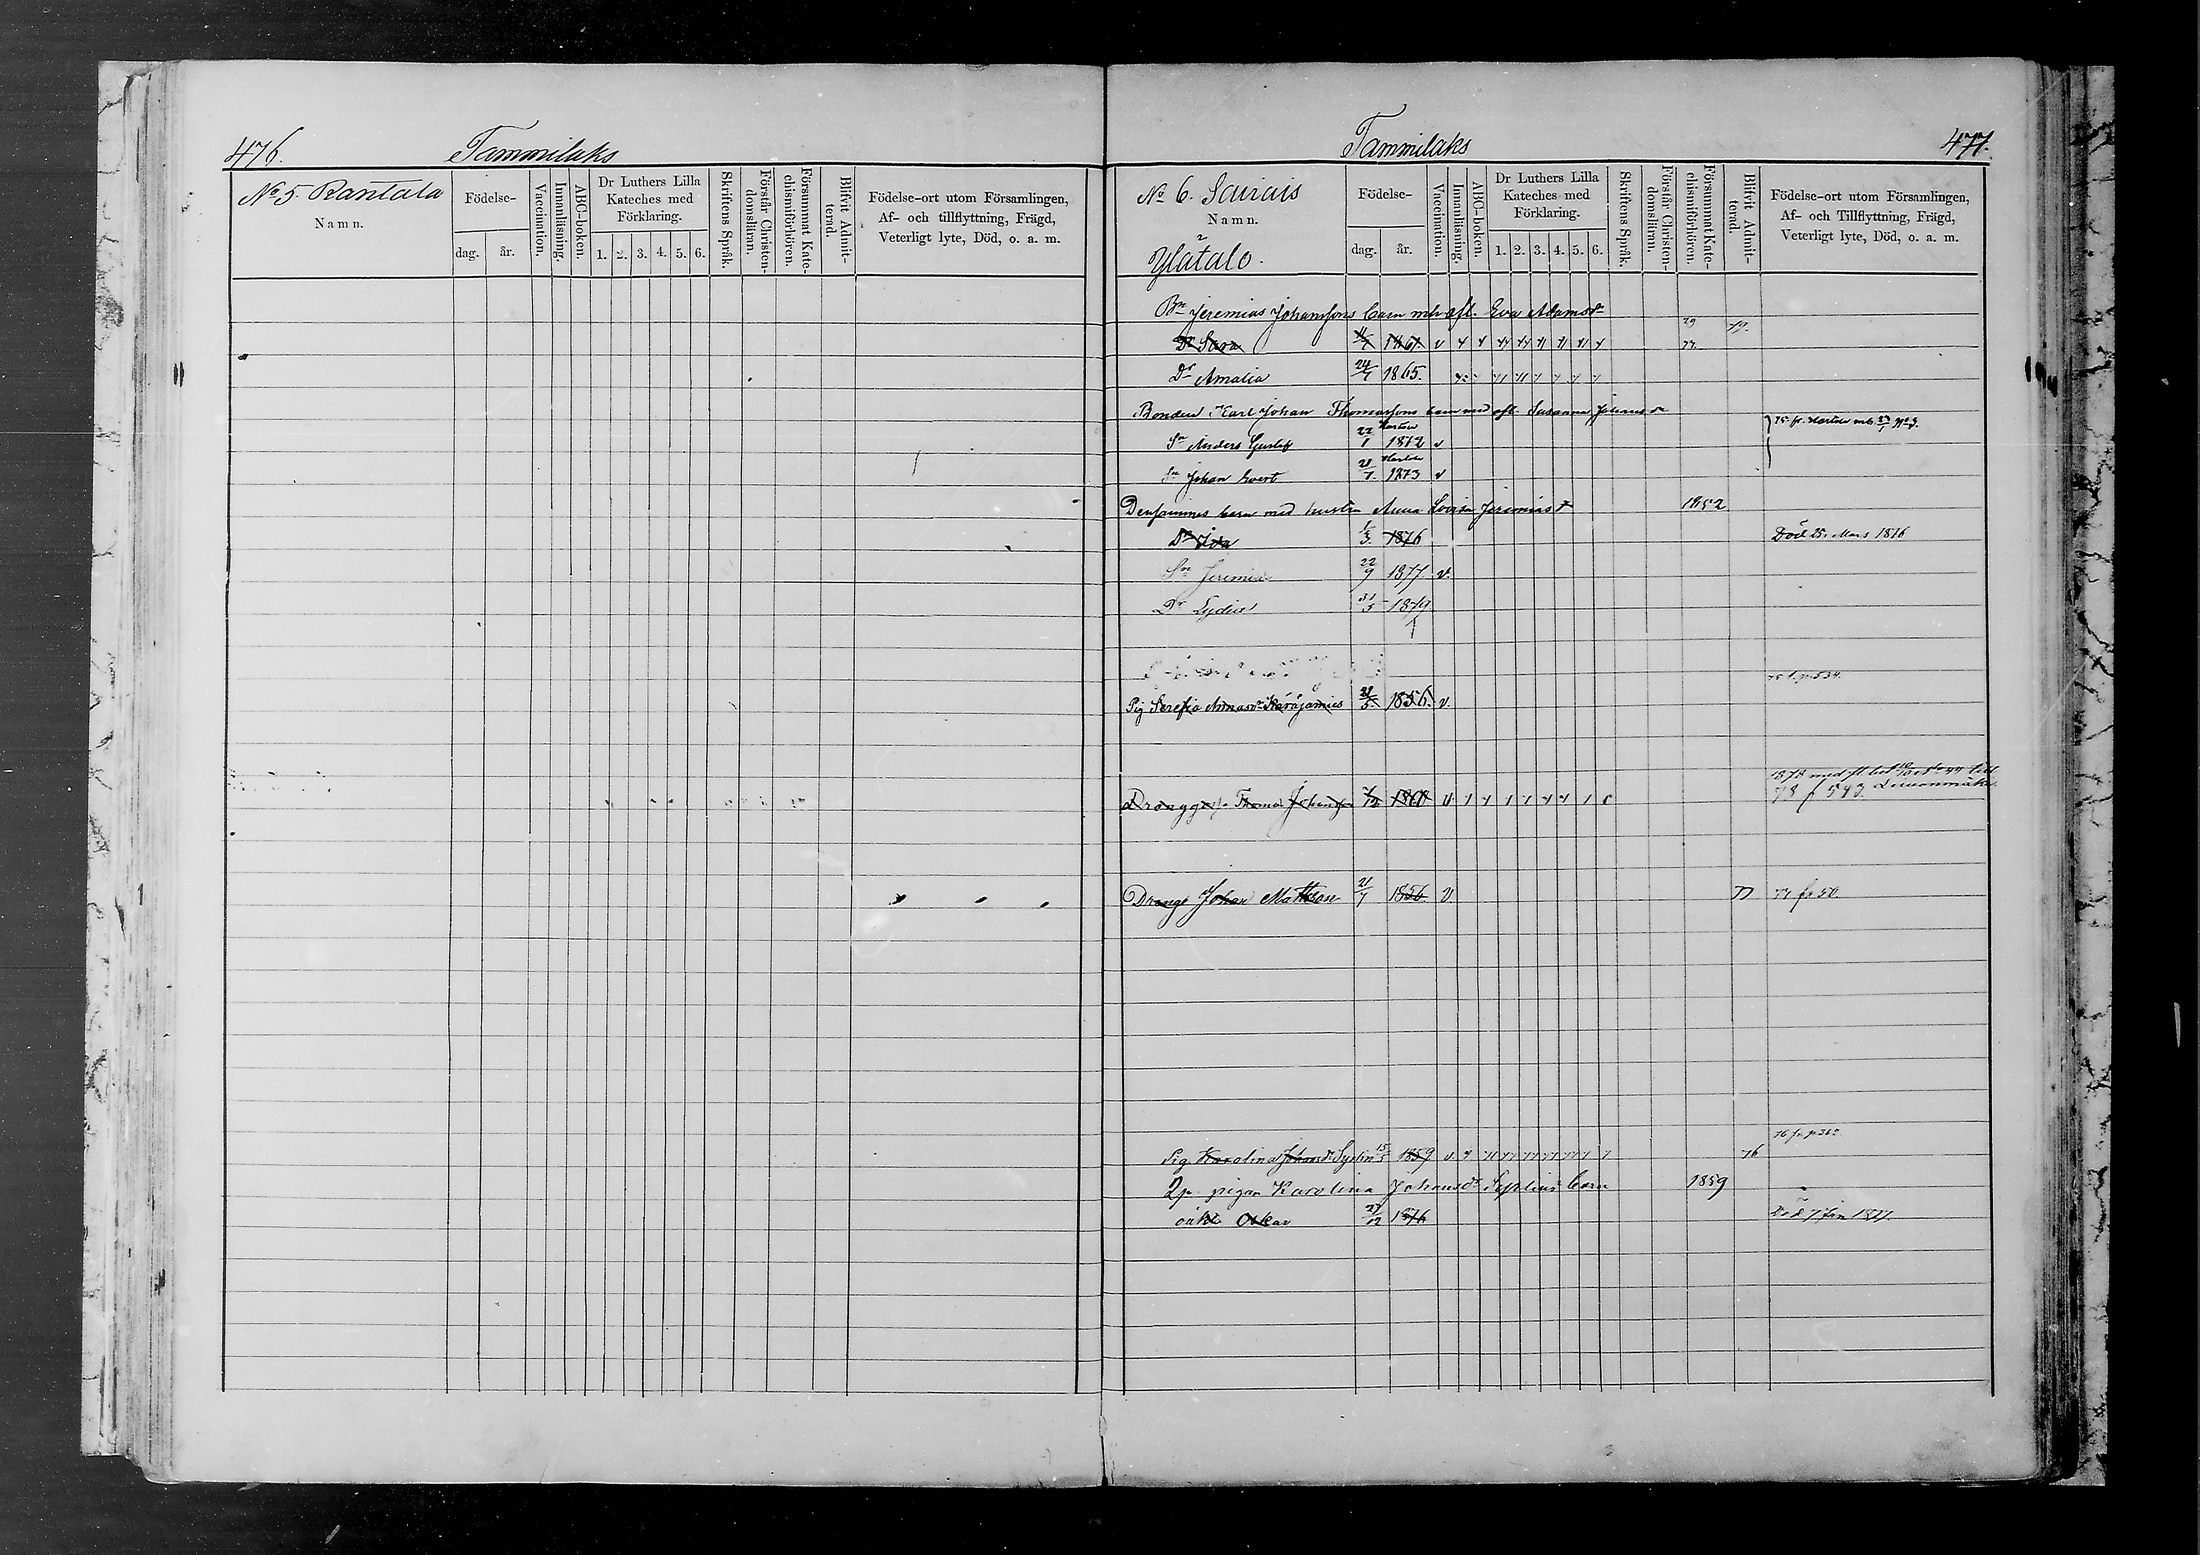 476.
Tammilaks
No 5. Rantala
Namn.
Födelse-
dag.
år.
Vaccination.
Innanläsning.
ABC-boken.
Dr Luthers Lilla
Kateches med
Förklaring.
1. 2. 3. 4. 5. 6.
Skriftens Språk.
Förstår Christen-
domsläran.
Försummat Kate-
chismiförhören.
Blifvit Admit-
terad.
Födelse-ort utom Församlingen,
Af- och tillflyttning, Frägd,
Veterligt lyte, Död, o. a. m.
Tammilaks
477.
No 6. Sairais
Namn.
2
Ylätalo.
Födelse-
dag.
år.
Vaccination.
Innanläsning.
ABC-boken.
Dr Luthers Lilla
Kateches med
Förklaring.
1. 2. 3. 4. 5. 6.
Skriftens Språk.
Förstår Christen-
domsläran.
Försummat Kate-
chismiförhören.
Blifvit Admit-
terad.
Födelse-ort utom Församlingen,
Af- och Tillflyttning, Frägd,
Veterligt lyte, Död, o. a. m.
Bn Jeremias Johanssons barn m afl. Eva Adamsdr
Dr Sara 1861 v
Dr Amalia 24/7 1865.
Bonden Karl Johan Thomassons barn med afl. Susanna Johansdr
Sn Anders Gustaf 22/1 1872 v
Sn Johan Evert 1873 v
Densammes barn med hustru Anna Lovisa Jeremiasdr 1852
Dr Ida 1/3 1876 Död 25. Mars 1876
Sn Jeremias 22/9 1877 v.
Dr Lydia 31/3 1879
75 f. p. 534.
Pig Serefia Annasdr Karajamies 1856. v.
1878 med
78 f 593.
Dräng Thomas Johansson 1860 v
Dräng Johan Mattsson 21/7 1856 v 77 77 fr 50.
76 fr. p. 362
Pig. Karolina Johansdr Syplin 15/5 1859 v. 76
2p. pigan Karolina Johansdr Syplins barn 1859
oäkt. Oskar 27/12 1876 Död 7 jan 1877.